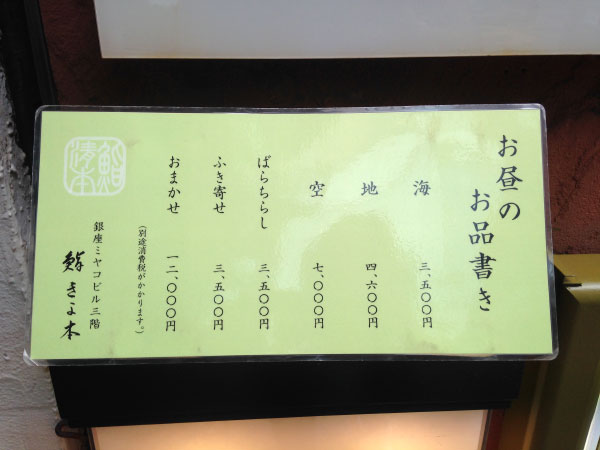 お昼の
お品書き
海 三、五〇〇円
地 四、六〇〇円
空 七、〇〇〇円
ばらちらし 三、五〇〇円
ふき寄せ 三、五〇〇円
おまかせ 一二、〇〇〇円
（別途消費税がかかります。）
銀座ミヤコビル三階
鮨 きよ木
鮨
清木